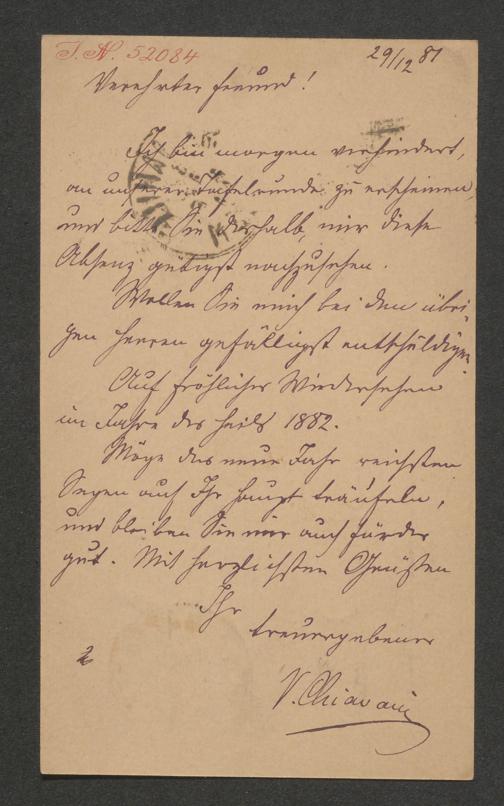 I. N. 52084
29/12 81
Verehrter Freund!
Ich bin morgen verhindert,
an unserer Tafelrunde zu erscheinen,
und bitte Sie deshalb, mir diese
Absenz gütigst nachzusehen.
Wollen Sie mich bei den übri-
gen Herren gefälligst entschuldigen.
Auf fröhliches Wiedersehen
im Jahre des Heils 1882.
Möge das neue Jahr reichsten
Segen auf Ihr Haupt träufeln,
und bleiben Sie mir auch fürder
gut. Mit herzlichsten Grüßen
Ihr
treuergebener
V. Chiavacci